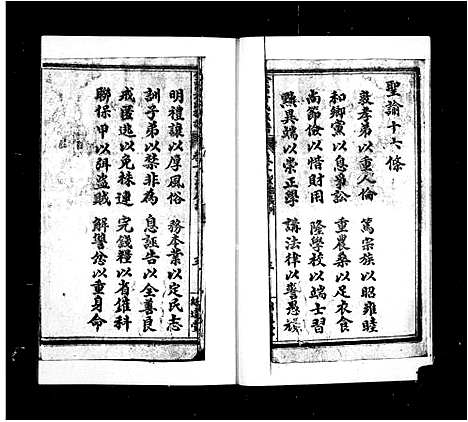 聖諭十六條
敦孝弟以重人倫　篤宗族以昭雍睦
和鄉黨以息爭訟　重農桑以足衣食
尚節儉以惜財用　隆學校以端士習
黜異端以崇正學　講法律以警愚頑
明禮讓以厚風俗　務本業以定民志
訓子弟以禁非為　息誣告以全善良
戒匿逃以免株連　完錢糧以省催科
聯保甲以弭盜賊　解讐忿以重身命
五